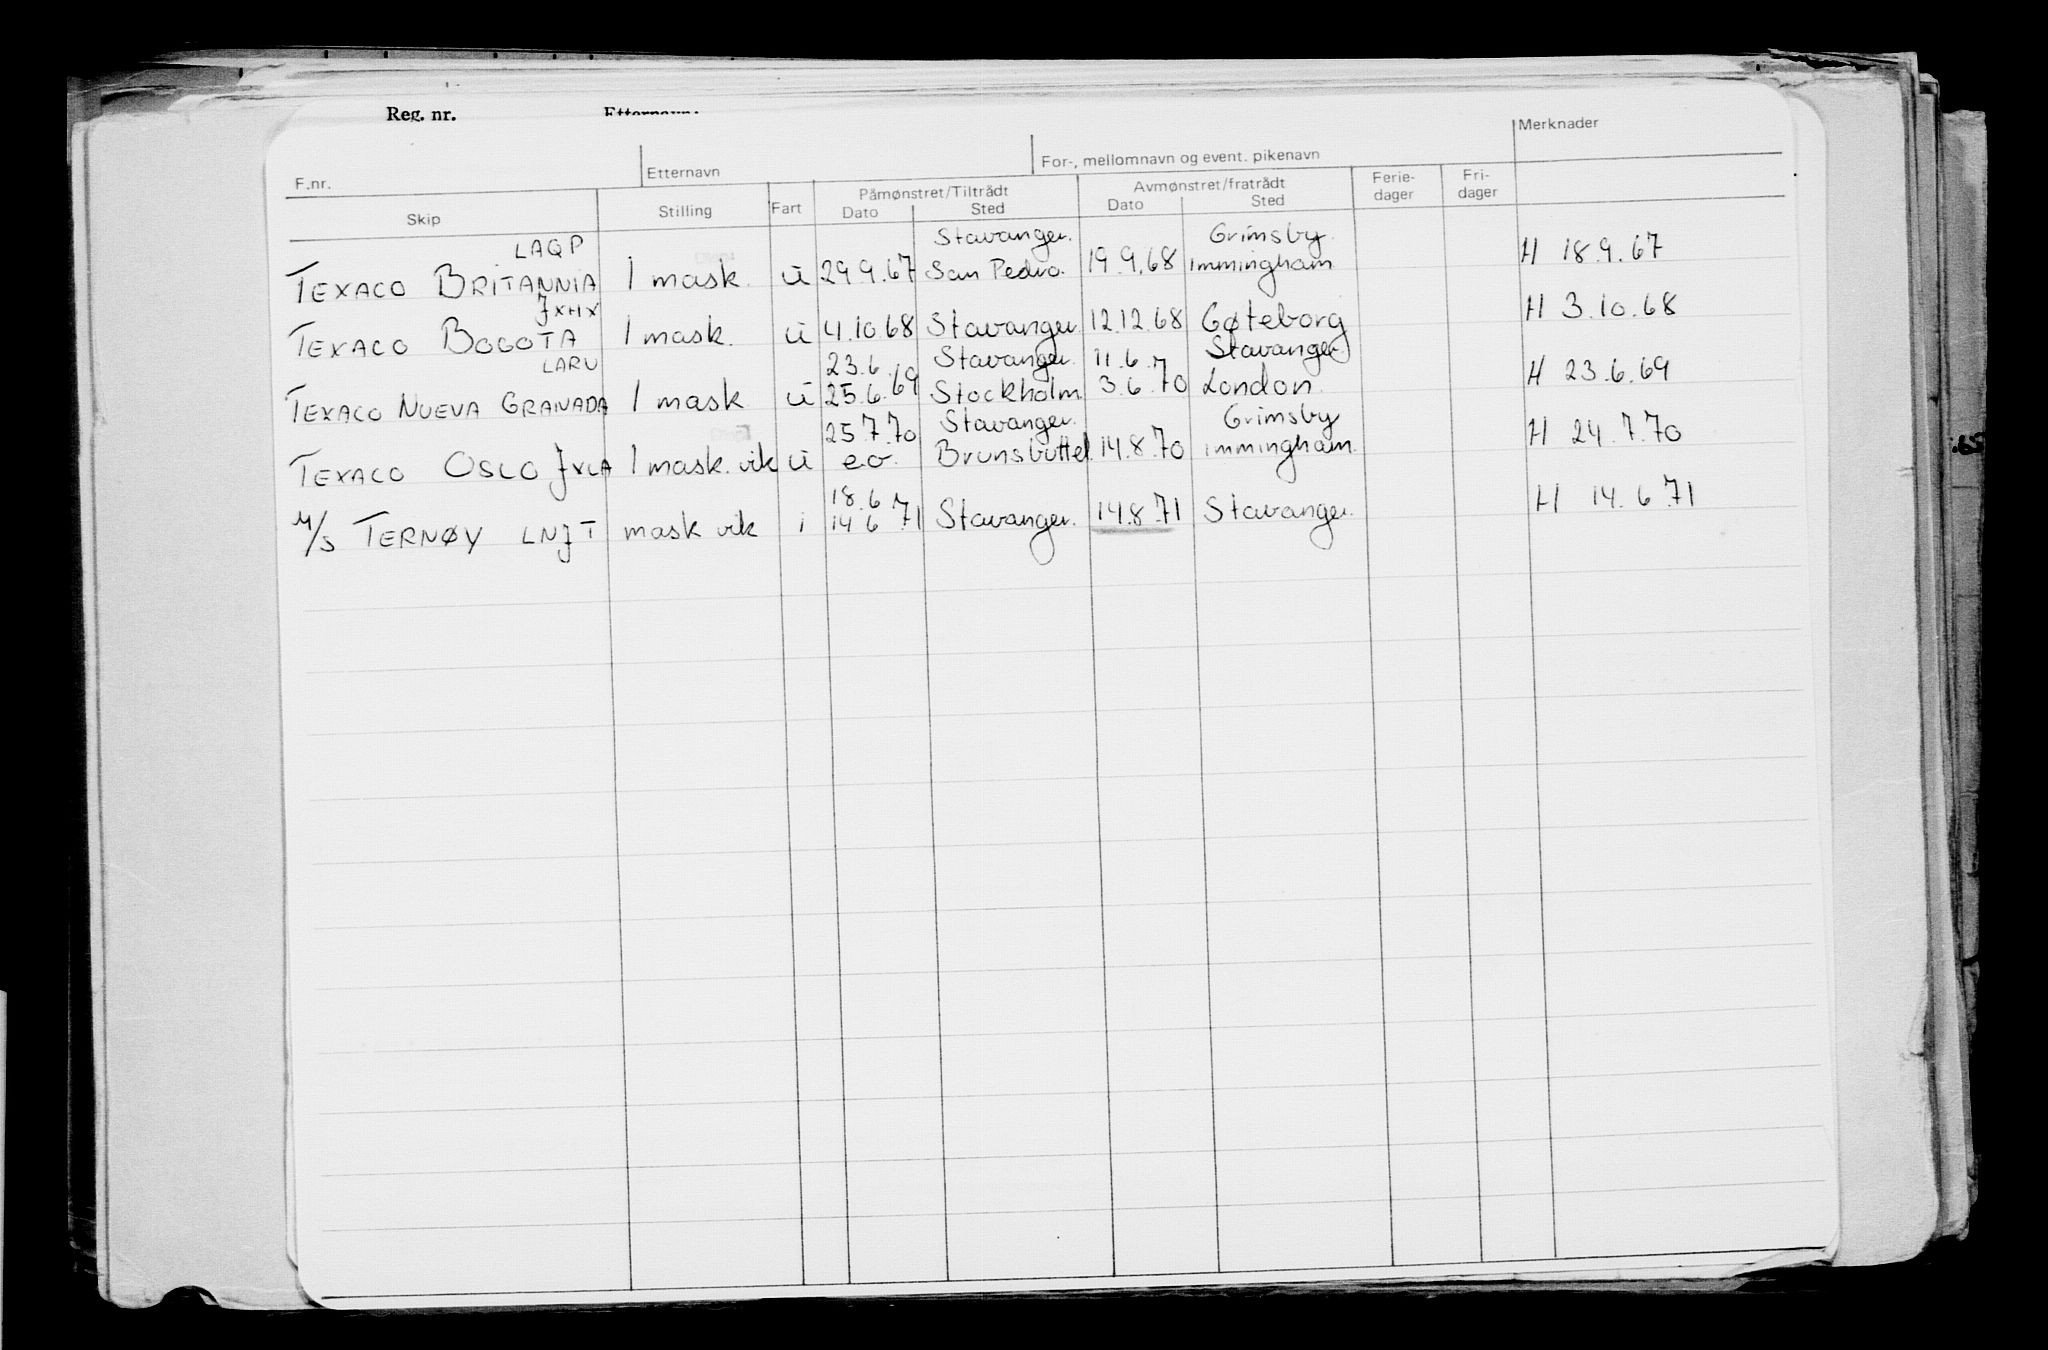 Reg. nr. Etternavn:
Merknader
F.nr. Etternavn For-, mellomnavn og event. pikenavn
Skip Stilling Fart Påmønstret/Tiltrådt Avmønstret/fratrådt Ferie-dager Fri-dager
Dato Sted Dato Sted
LAQP Stavanger. Grimsby
TEXACO BRITANNIA 1 mask. u 29.9.67 San Pedro. 19.9.68 Immingham H 18.9.67
JXHX
TEXACO BOGOTA 1 mask. u 4.10.68 Stavanger. 12.12.68 Gøteborg H 3.10.68
LARU 23.6. Stavanger. 11.6.70 Stavanger.
TEXACO NUEVA GRANADA 1 mask u 25.6.69 Stockholm 3.6.70 London. H 23.6.69
25.7.70 Stavanger. Grimsby
TEXACO OSLO JXLA 1 mask. vik u e.o. Brunsbüttel. 14.8.70 immingham. H 24.7.70
18.6
M/S TERNØY LNJT mask vik i 14.6.71 Stavanger. 14.8.71 Stavanger. H 14.6.71
.65